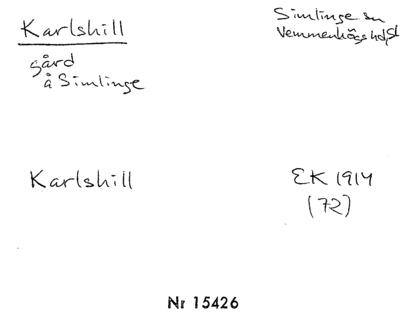 Karlshill
Simlinge sn
Vemmenhögs hd, Sk
gård
å Simlinge
Karlshill
EK 1914
(72)
Nr 15426